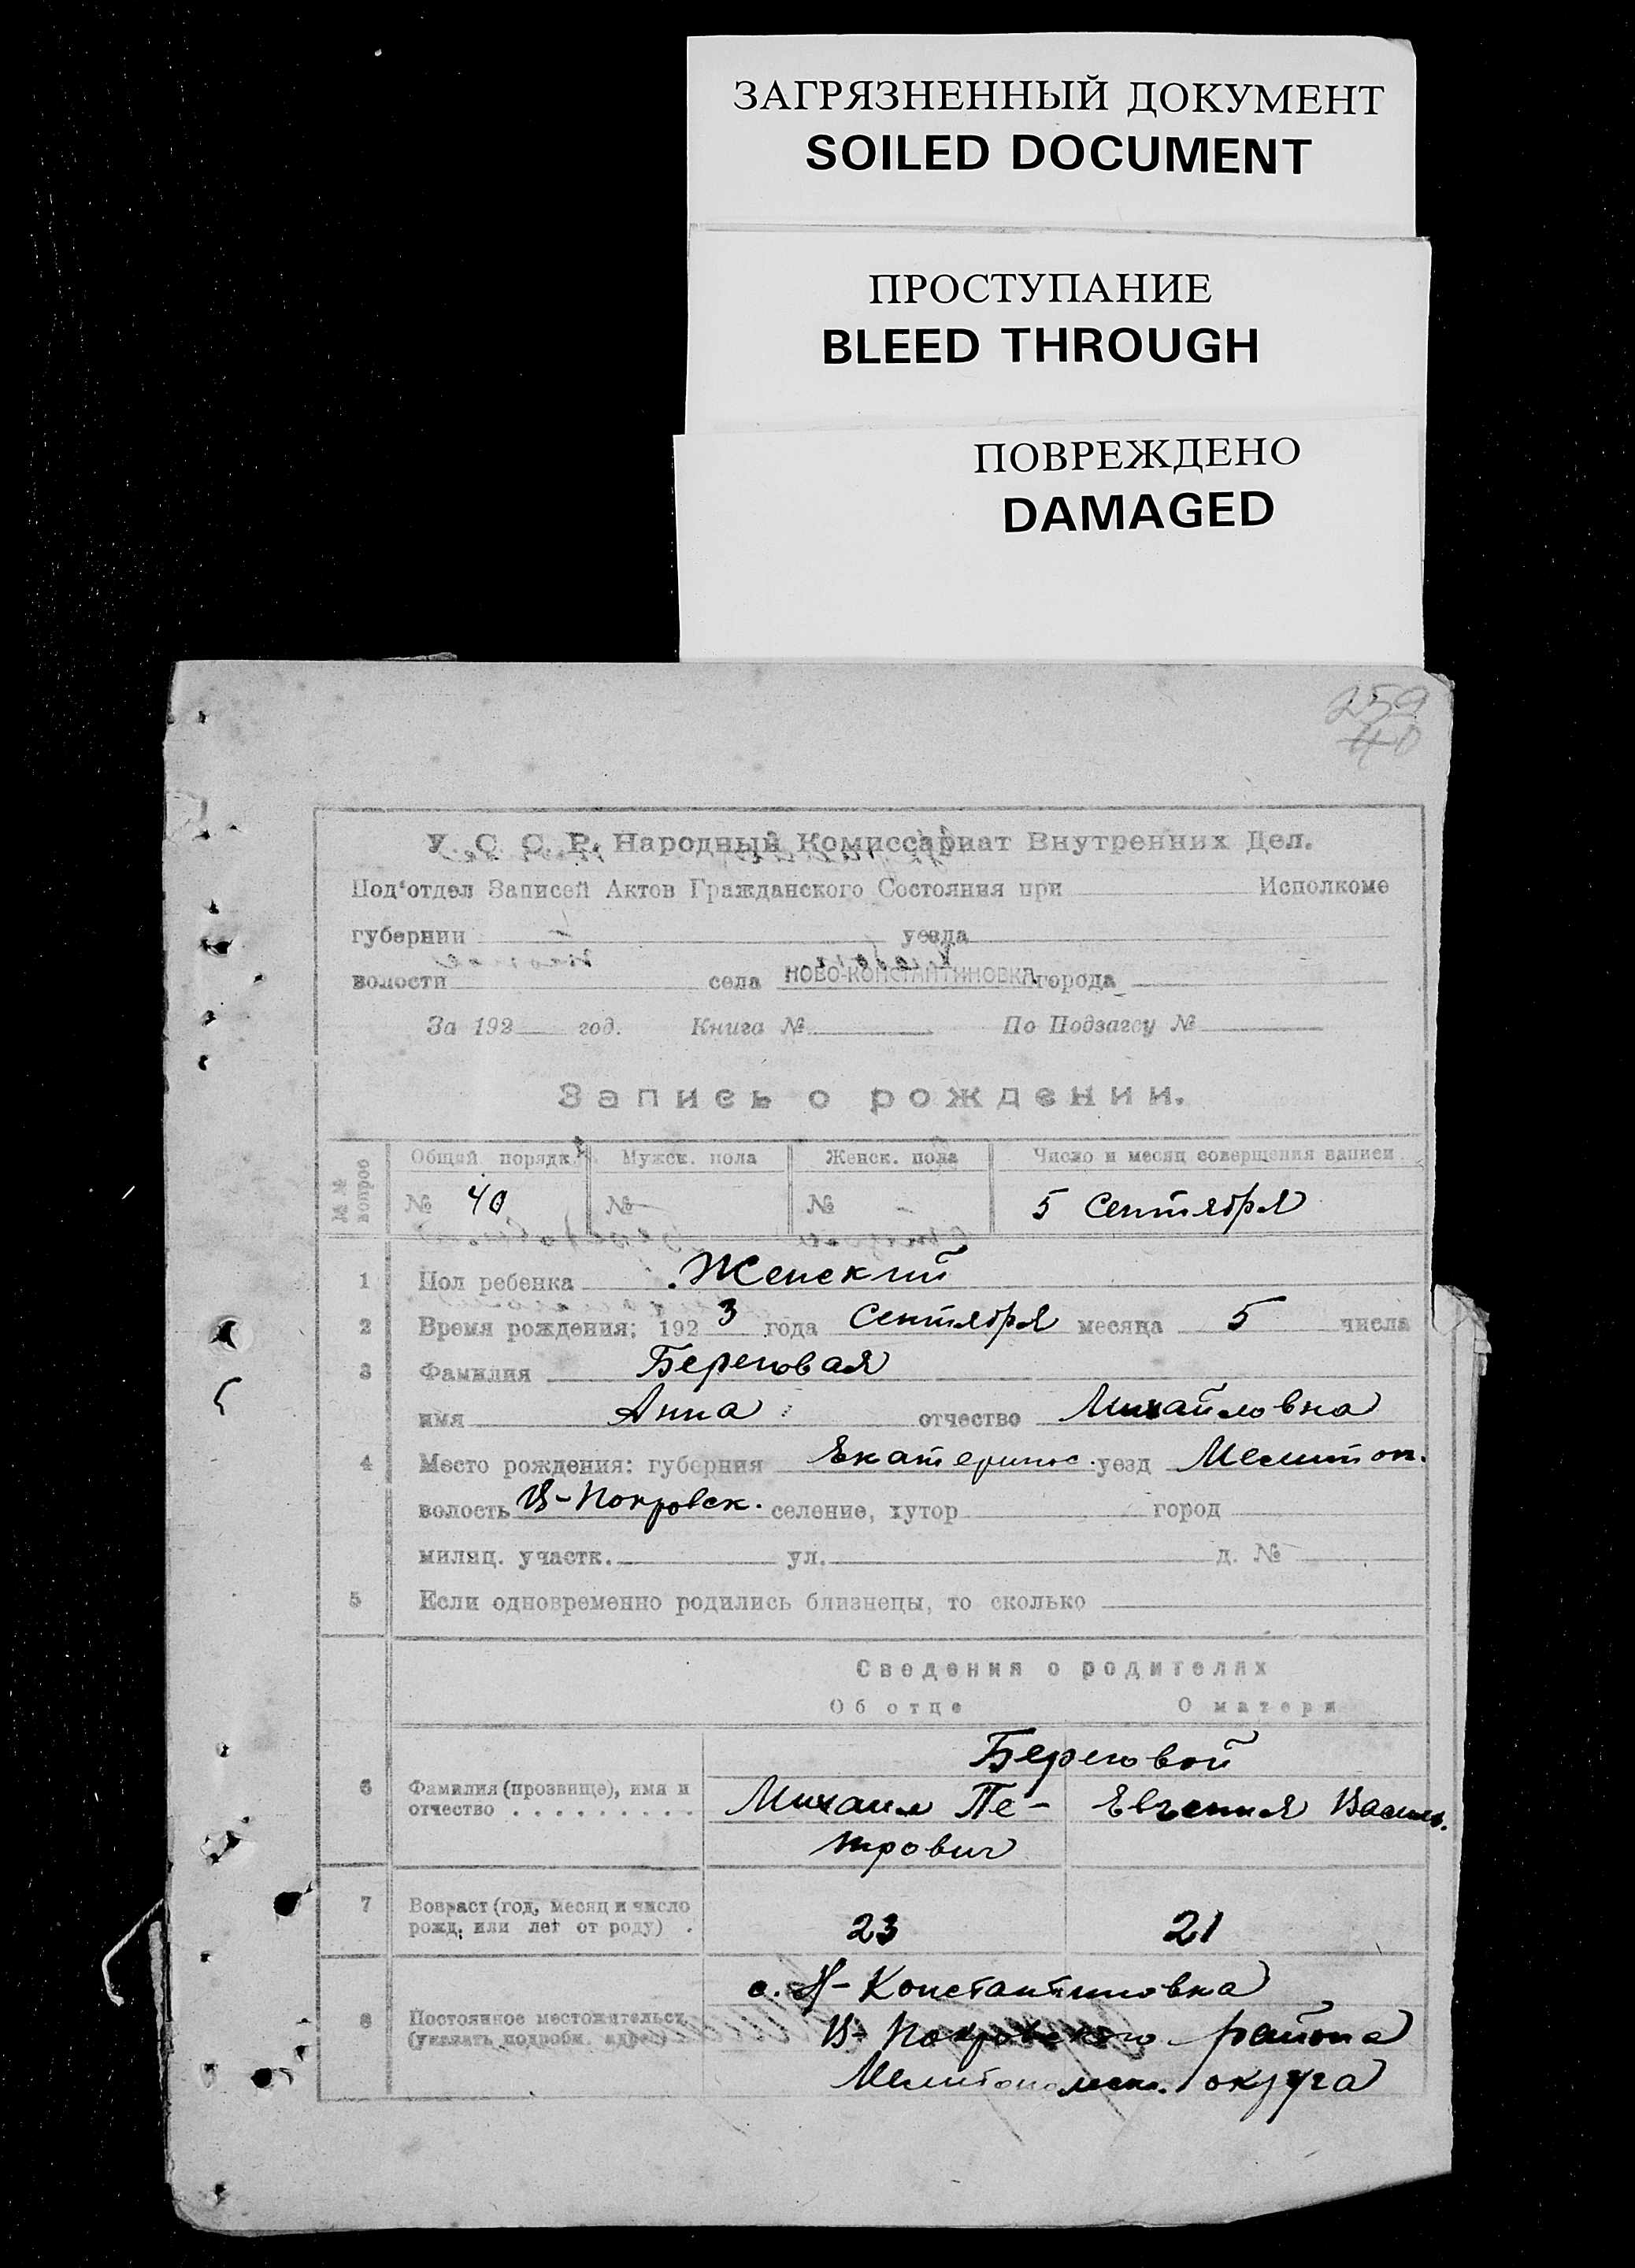 ЗАГРЯЗНЕННЫЙ ДОКУМЕНТ
SOILED DOCUMENT
ПРОСТУПАНИЕ
BLEED THROUGH
ПОВРЕЖДЕНО
DAMAGED
259
40
У. С. С. Р. Народный Комиссариат Внутренних Дел.
Под'отдел Записей Актов Гражданского Состояния при Исполкоме
губернии уезда
волости села НОВО-КОНСТАНТИНОВКА города
За 192 год. Книга № По Подзагсу №
Запись о рождении.
№№ вопрос Общий порядк. Мужск. пола Женск. пола Число и месяц совершения записи
№ 40 № — № — 5 Сентября
1 Пол ребенка Женский
2 Время рождения: 1923 года Сентября месяца 5 числа
3 Фамилия Береговая
имя Анна отчество Михайловна
4 Место рождения: губерния Екатеринос. уезд Мелитоп.
волость В-Покровск. селение, хутор город
милиц. участк. ул. д. №
5 Если одновременно родились близнецы, то сколько
Сведения о родителях
Об отце О матери
Береговой
6 Фамилия (прозвище), имя и
отчество . . . . . . . . . Михаил Пе- Евгения Василь.
трович
7 Возраст (год, месяц и число
рожд. или лет от роду) . 23 21
с. Н-Константиновка
8 Постоянное местожительст.
(указать подробн. адрес) В-Покровского района
Мелитопольск. округа